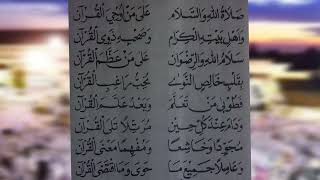 صَلَاةُ اللهِ وَالسَّلَام عَلَى مَنْ أُوحِيَ الْقُرْآن
وَاهْلِ بَيْتِهِ الْكِرَام وَصَحْبِهِ ذَوِي الْقُرْآن
سَلَامُ اللهِ وَالرِّضْوَان عَلَى مَنْ عَظَّمَ الْقُرْآن
بِقَلْبٍ خَالِصِ النَّوَى يُحِبُّ رَاغِبَ الْقُرْآن
فَطُوْبَى مَنْ تَعَلَّمَ وَبَعْدُ عَلَّمَ الْقُرْآن
وَدَامَ عِنْدَ كُلِّ حِيْن مُرَتِّلًا تَلَى الْقُرْآن
مُجَوِّدًا وَخَاشِعًا وَمُفْهِمًا مَعْنَى الْقُرْآن
وَعَامِلًا جَمِيْعَ مَا حَوَى وَمَا اقْتَضَى الْقُرْآن